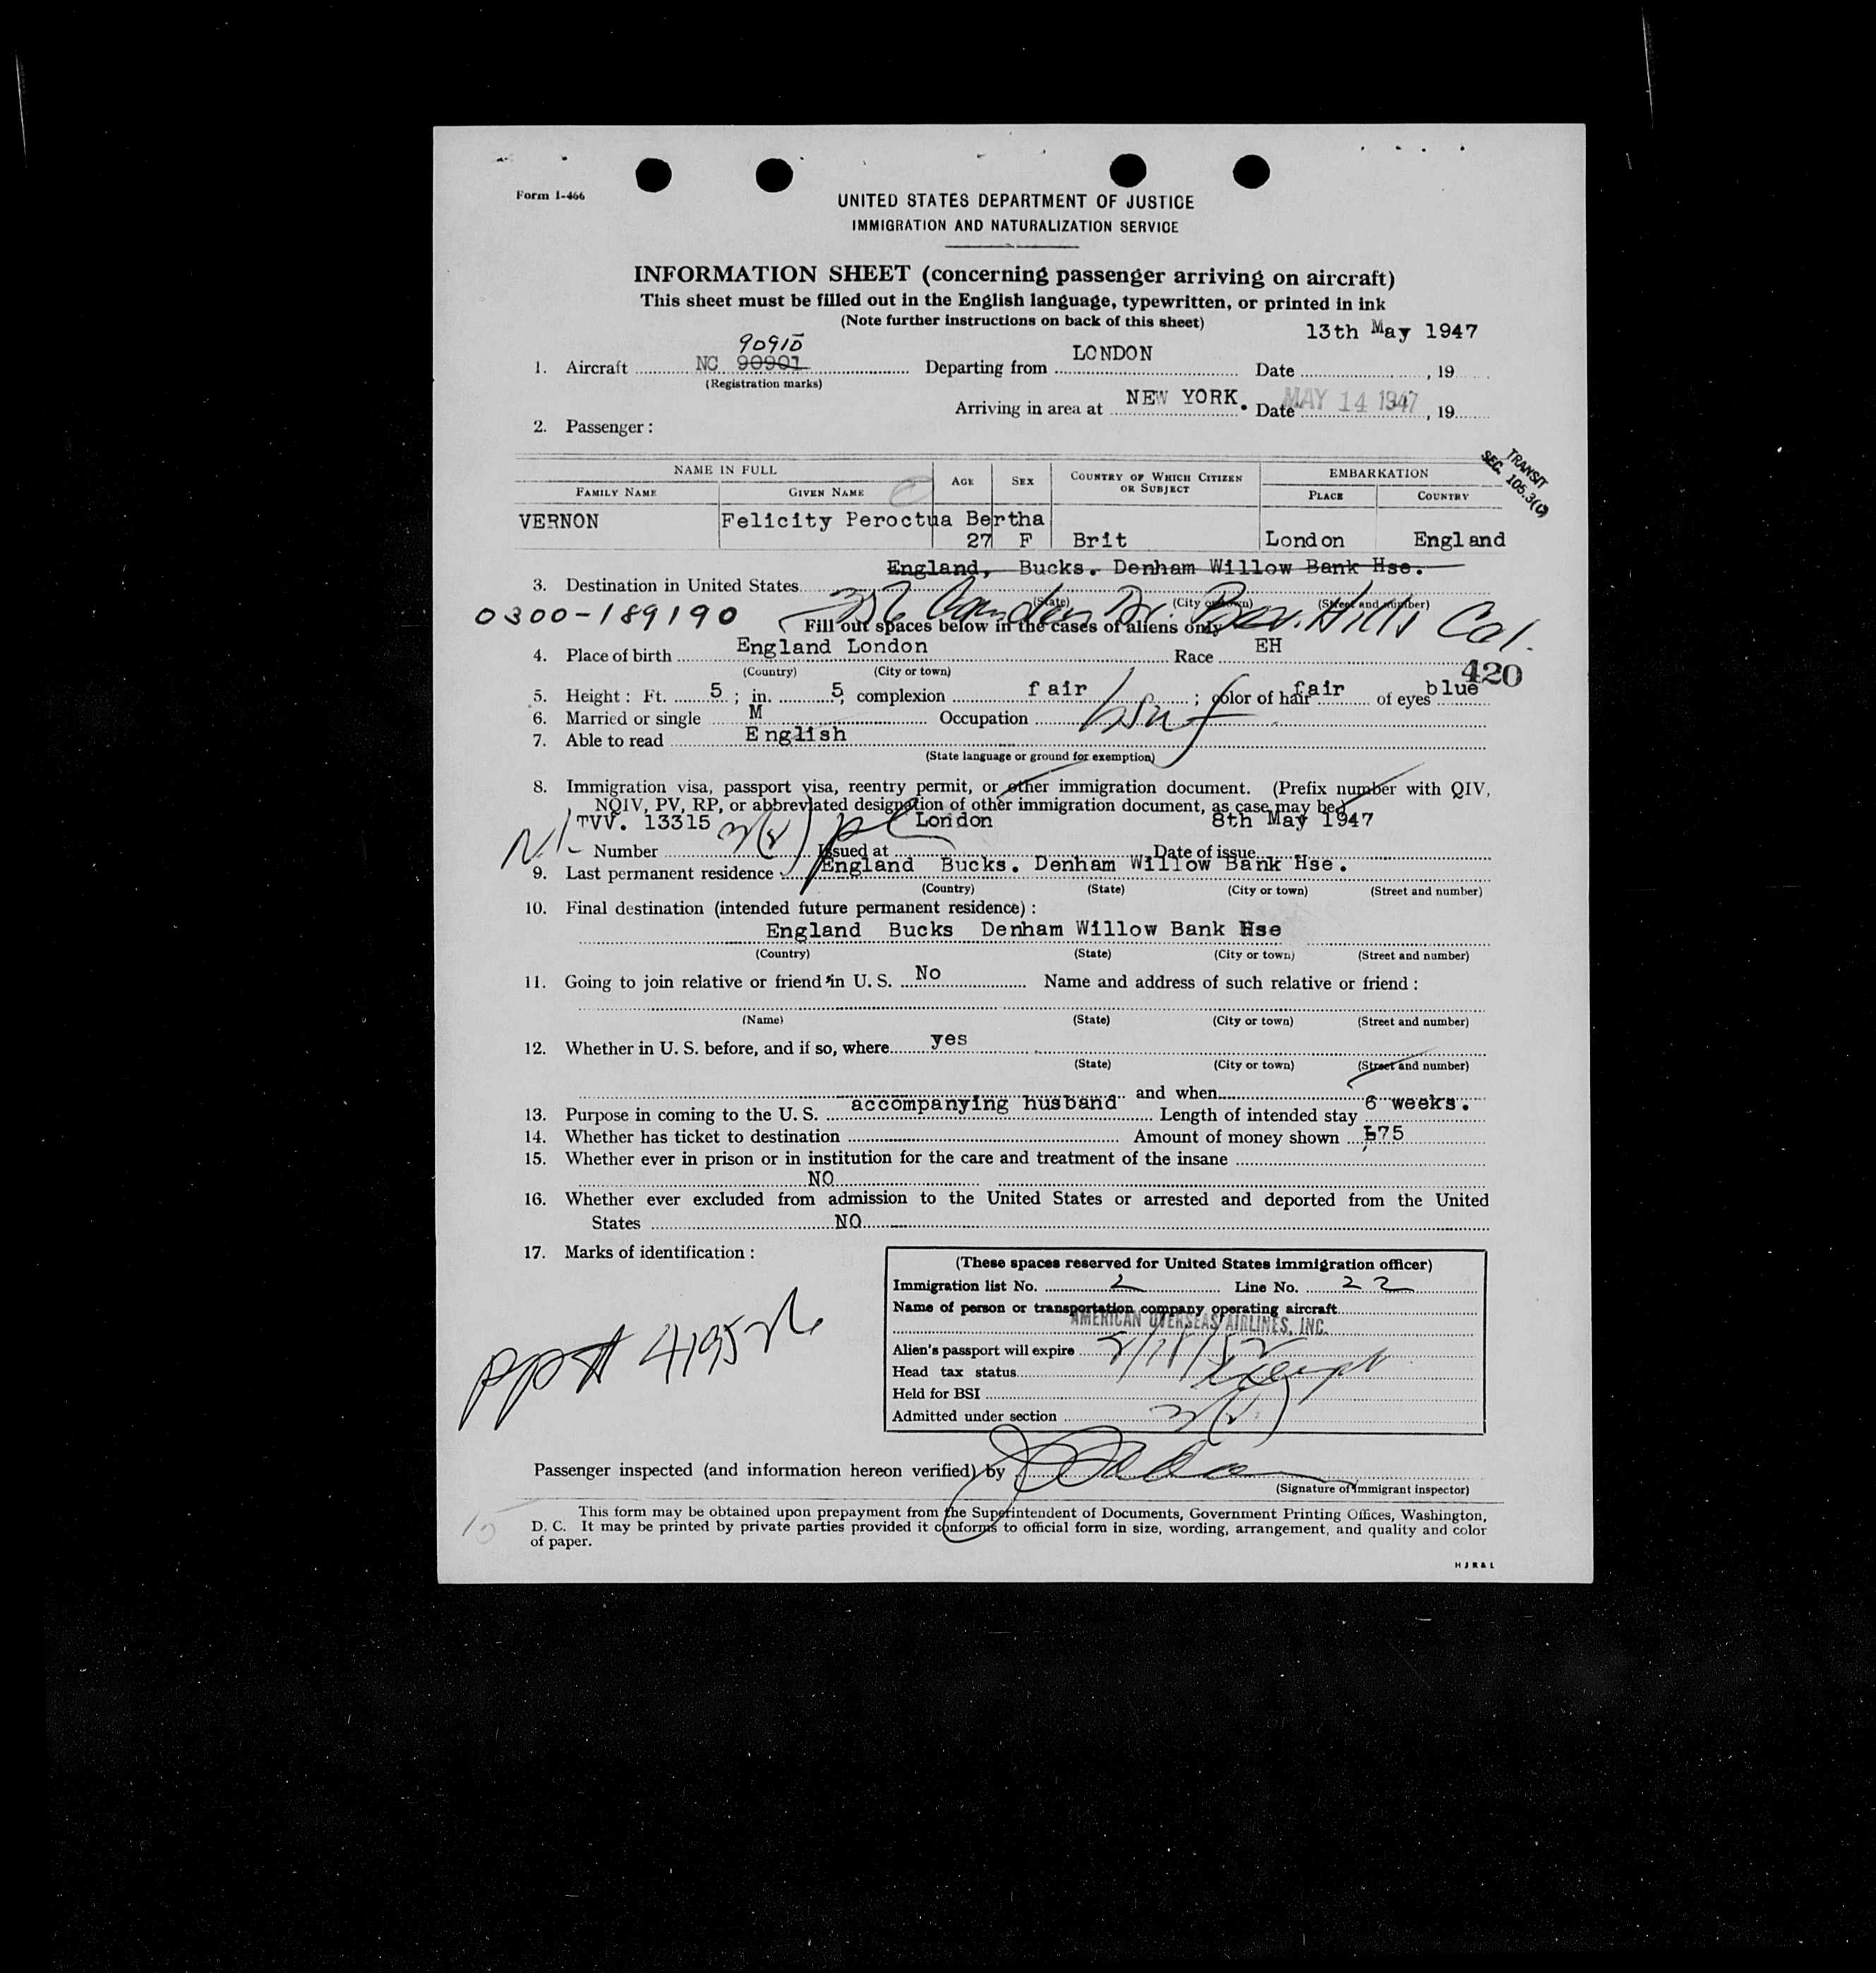 Form I-466
UNITED STATES DEPARTMENT OF JUSTICE
IMMIGRATION AND NATURALIZATION SERVICE
INFORMATION SHEET (concerning passenger arriving on aircraft)
This sheet must be filled out in the English language, typewritten, or printed in ink
(Note further instructions on back of this sheet)
13th May 1947
90910
1. Aircraft NC 90901 Departing from LONDON Date , 19
(Registration marks)
Arriving in area at NEW YORK. Date MAY 14 1947, 19
2. Passenger:
TRANSIT
SEC. 105.3(c)
NAME IN FULL AGE SEX COUNTRY OF WHICH CITIZEN OR SUBJECT EMBARKATION
FAMILY NAME GIVEN NAME PLACE COUNTRY
VERNON Felicity Peroctua Bertha
27 F Brit London England
England, Bucks. Denham Willow Bank Hse.
3. Destination in United States
(State) (City or town) (Street and number)
0300-189190 Dr. Bev. Hills Cal.
Fill out spaces below in the cases of aliens only
4. Place of birth England London Race EH
(Country) (City or town)
420
5. Height: Ft. 5; in. 5, complexion fair; color of hair fair of eyes blue
6. Married or single M Occupation hswf
7. Able to read English
(State language or ground for exemption)
8. Immigration visa, passport visa, reentry permit, or other immigration document. (Prefix number with QIV,
NQIV, PV, RP, or abbreviated designation of other immigration document, as case may be.)
TVV. 13315 3(2) London 8th May 1947
Number Issued at Date of issue
9. Last permanent residence England Bucks. Denham Willow Bank Hse.
(Country) (State) (City or town) (Street and number)
10. Final destination (intended future permanent residence):
England Bucks Denham Willow Bank Hse
(Country) (State) (City or town) (Street and number)
11. Going to join relative or friend in U. S. No Name and address of such relative or friend:
(Name) (State) (City or town) (Street and number)
12. Whether in U. S. before, and if so, where yes
(State) (City or town) (Street and number)
and when
13. Purpose in coming to the U. S. accompanying husband Length of intended stay 6 weeks.
14. Whether has ticket to destination Amount of money shown £75
15. Whether ever in prison or in institution for the care and treatment of the insane
NO
16. Whether ever excluded from admission to the United States or arrested and deported from the United
States NO
17. Marks of identification:
(These spaces reserved for United States immigration officer)
Immigration list No. 2 Line No. 22
Name of person or transportation company operating aircraft
AMERICAN OVERSEAS AIRLINES, INC.
Alien's passport will expire
Head tax status Exempt
Held for BSI
Admitted under section 3(2)
PP#
Passenger inspected (and information hereon verified) by
(Signature of Immigrant inspector)
This form may be obtained upon prepayment from the Superintendent of Documents, Government Printing Offices, Washington,
D. C. It may be printed by private parties provided it conforms to official form in size, wording, arrangement, and quality and color
of paper.
HJR&L